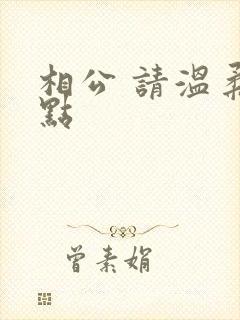 相公 請溫柔
點
曾素娟